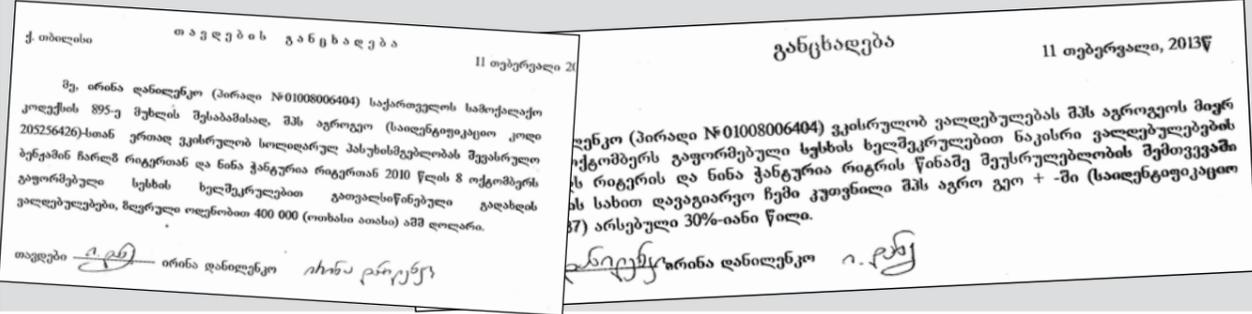 ქ. თბილისი
თავდების განცხადება
11 თებერვალი 20
მე, ირინა დანილენკო (პირადი №01008006404) საქართველოს სამოქალაქო
კოდექსის 895-ე მუხლის შესაბამისად, შპს აგროგეო (საიდენტიფიკაციო კოდი
205256426)-სთან ერთად ვკისრულობ სოლიდარულ პასუხისმგებლობას შევასრულო
ბენჟამინ ჩარლზ რიტერთან და ნინა ჭანტურია რიტერთან 2010 წლის 8 ოქტომბერს
გაფორმებული სესხის ხელშეკრულებით გათვალისწინებული გადახდის
ვალდებულებები, ზღვრული ოდენობით 400 000 (ოთხასი ათასი) აშშ დოლარი.
თავდები ი. დან ირინა დანილენკო ირინა დანილენკო
განცხადება
11 თებერვალი, 2013წ
ლენკო (პირადი №01008006404) ვკისრულობ ვალდებულებას შპს აგროგეოს მიერ
ოქტომბერს გაფორმებული სესხის ხელშეკრულებით ნაკისრი ვალდებულებების
ს რიტერის და ნინა ჭანტურია რიტრის წინაშე შეუსრულებლობის შემთვევაში
ის სახით დავაგირავო ჩემი კუთვნილი შპს აგრო გეო + -ში (საიდენტიფიკაციო
37) არსებული 30%-იანი წილი.
ირინა დანილენკო ი. დან